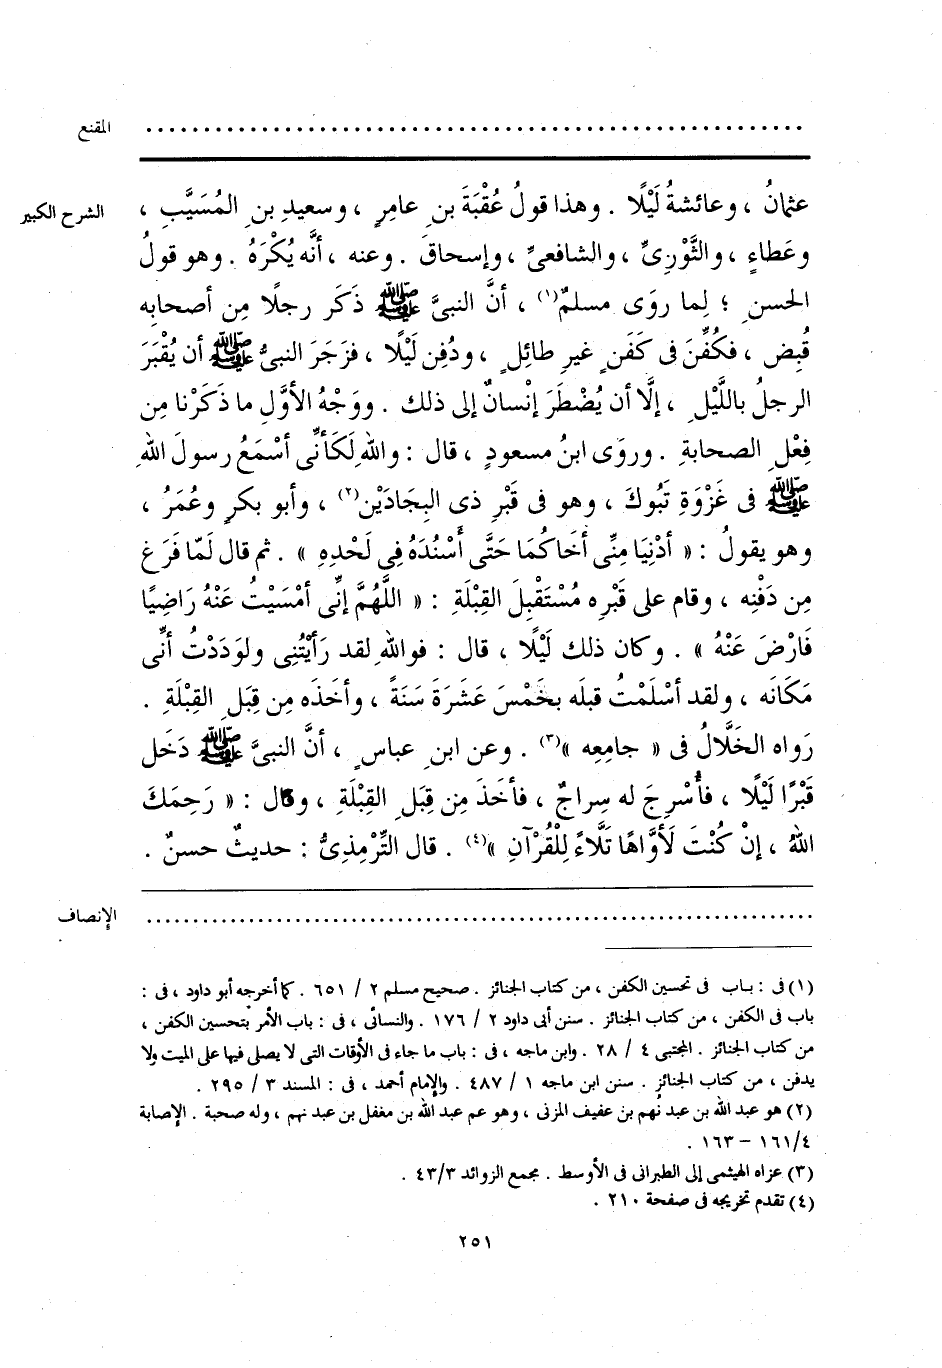 المقنع ........................................................
الشرح الكبير
عثمانُ ، وعائشةُ لَيْلًا . وهذا قولُ عُقْبَةَ بنِ عامرٍ ، وسعيدِ بنِ المُسَيَّبِ ،
وعَطاءٍ ، والثَّوْرِىِّ ، والشافعىِّ ، وإسحاقَ . وعنه ، أنَّه يُكْرَهُ . وهو قولُ
الحسنِ ؛ لِما روَى مسلمٌ(١) ، أنَّ النبىَّ ﷺ ذَكَر رجلًا مِن أصحابِه
قُبِض ، فكُفِّنَ فى كَفَنٍ غيرِ طائِلٍ ، ودُفِن لَيْلًا ، فزَجَرَ النبىُّ ﷺ أن يُقْبَرَ
الرجلُ باللَّيْلِ ، إلَّا أن يُضْطَرَ إنْسانٌ إلى ذلك . ووَجْهُ الأوَّلِ ما ذكَرْنا مِن
فِعْلِ الصحابةِ . وروَى ابنُ مسعودٍ ، قال : واللهِ لَكَأنِّى أسْمَعُ رسولَ اللهِ
ﷺ فى غَزْوَةِ تَبُوكَ ، وهو فى قَبْرِ ذى البِجَادَيْنِ(٢) ، وأبو بكرٍ وعُمَرُ ،
وهو يقولُ : « أدْنِيَا مِنِّى أخَاكُمَا حَتَّى أُسْنُدَهُ فِى لَحْدِهِ » . ثم قال لَمّا فَرَغ
مِن دَفْنِه ، وقام على قَبْرِه مُسْتَقْبِلَ القِبْلَةِ : « اللَّهُمَّ إنِّى أمْسَيْتُ عَنْهُ رَاضِيًا
فَارْضَ عَنْهُ » . وكان ذلك لَيْلًا ، قال : فواللهِ لقد رَأيْتُنِى ولوَدَدْتُ أنِّى
مَكَانَه ، ولقد أسْلَمْتُ قبلَه بخَمْسَ عَشَرَةَ سَنَةً ، وأخَذَه مِن قِبَلِ القِبْلَةِ .
رَواه الخَلَّالُ فى « جامِعِه »(٣) . وعن ابنِ عباسٍ ، أنَّ النبىَّ ﷺ دَخَل
قَبْرًا لَيْلًا ، فأُسْرِجَ له سِراجٌ ، فأخَذَ مِن قِبَلِ القِبْلَةِ ، وقال : « رَحِمَكَ
اللهُ ، إنْ كُنْتَ لَأوَّاهًا تَلَّاءً لِلْقُرْآنِ »(٤) . قال التِّرْمِذِىُّ : حديثٌ حسنٌ .
الإنصاف ........................................................
(١) فى : باب فى تحسين الكفن ، من كتاب الجنائز . صحيح مسلم ٢ / ٦٥١ . كما أخرجه أبو داود ، فى :
باب فى الكفن ، من كتاب الجنائز . سنن أبى داود ٢ / ١٧٦ . والنسائى ، فى : باب الأمر بتحسين الكفن ،
من كتاب الجنائز . المجتبى ٤ / ٢٨ . وابن ماجه ، فى : باب ما جاء فى الأوقات التى لا يصلى فيها على الميت ولا
يدفن ، من كتاب الجنائز . سنن ابن ماجه ١ / ٤٨٧ . والإمام أحمد ، فى : المسند ٣ / ٢٩٥ .
(٢) هو عبد الله بن عبد نُهم بن عفيف المزنى ، وهو عم عبد الله بن مغفل بن عبد نهم ، وله صحبة . الإصابة
٤/١٦١ – ١٦٣ .
(٣) عزاه الهيثمى إلى الطبرانى فى الأوسط . مجمع الزوائد ٤٣/٣ .
(٤) تقدم تخريجه فى صفحة ٢١٠ .
٢٥١